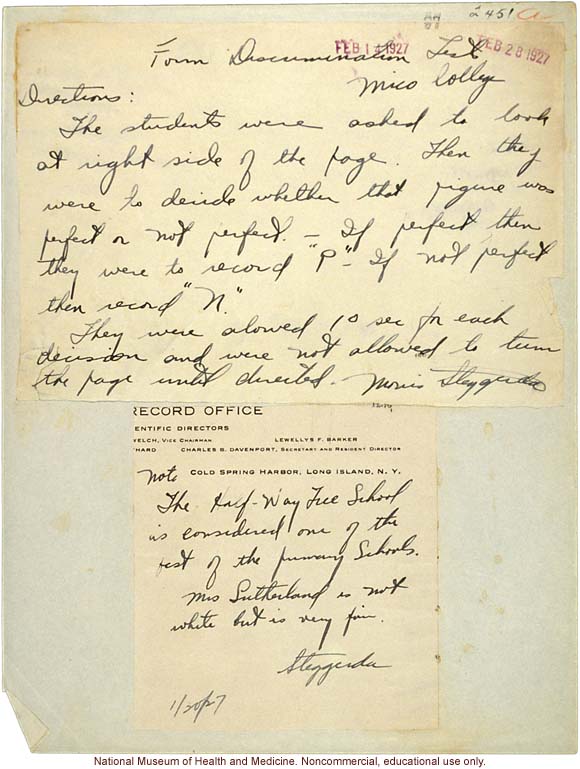 2451 a
FEB 14 1927
FEB 28 1927
Form Discrimination Test
Mico Colleg
Directions:
The students were asked to look
at right side of the page. Then they
were to decide whether that figure was
perfect or not perfect. — If perfect then
they were to record "P" - If not perfect
then record "N."
They were alowed 10 sec for each
decision and were not allowed to turn
the page until directed. Morris Steggerda
RECORD OFFICE
12-19
ENTIFIC DIRECTORS
WELCH, VICE CHAIRMAN LEWELLYS F. BARKER
HARD CHARLES B. DAVENPORT, SECRETARY AND RESIDENT DIRECTOR
Note COLD SPRING HARBOR, LONG ISLAND, N. Y.
The Half-Way Tree School
is considered one of the
best of the primary Schools.
Mrs Sutherland is not
white but is very fair.
Steggerda
1/20/27
National Museum of Health and Medicine. Noncommercial, educational use only.